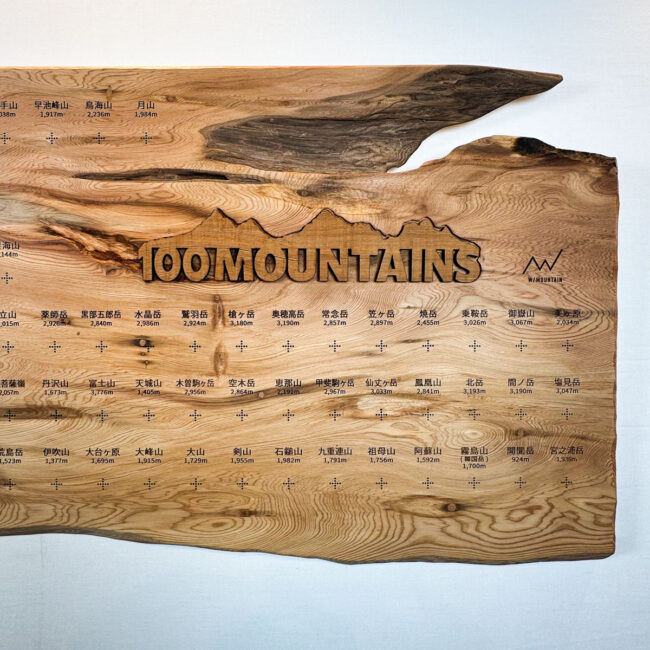 手山 早池峰山 鳥海山 月山
038m 1,917m 2,236m 1,984m
海山
144m
100MOUNTAINS
W/MOUNTAIN
立山 薬師岳 黒部五郎岳 水晶岳 鷲羽岳 槍ヶ岳 奥穂高岳 常念岳 笠ヶ岳 焼岳 乗鞍岳 御嶽山 美ヶ原
015m 2,926m 2,840m 2,986m 2,924m 3,180m 3,190m 2,857m 2,897m 2,455m 3,026m 3,067m 2,034m
菩薩嶺 丹沢山 富士山 天城山 木曽駒ヶ岳 空木岳 恵那山 甲斐駒ヶ岳 仙丈ヶ岳 鳳凰山 北岳 間ノ岳 塩見岳
2,057m 1,673m 3,776m 1,405m 2,956m 2,864m 2,191m 2,967m 3,033m 2,841m 3,193m 3,190m 3,047m
荒島岳 伊吹山 大台ヶ原 大峰山 大山 剣山 石鎚山 九重連山 祖母山 阿蘇山 霧島山 開聞岳 宮之浦岳
1,523m 1,377m 1,695m 1,915m 1,729m 1,955m 1,982m 1,791m 1,756m 1,592m (韓国岳) 924m 1,936m
1,700m